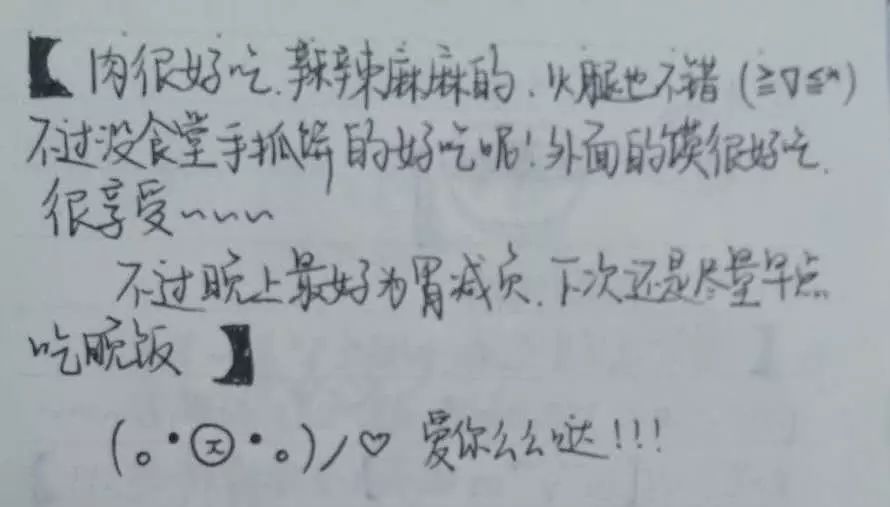 【肉很好吃.辣辣麻麻的.火腿也不错(≧∇≦*)
不过没食堂手抓饼的好吃呢!外面的馍很好吃.
很享受~~~
不过晚上最好为胃减负.下次还是尽量早点
吃晚饭】
(。•ⓧ•。)ノ♡ 爱你么么哒!!!